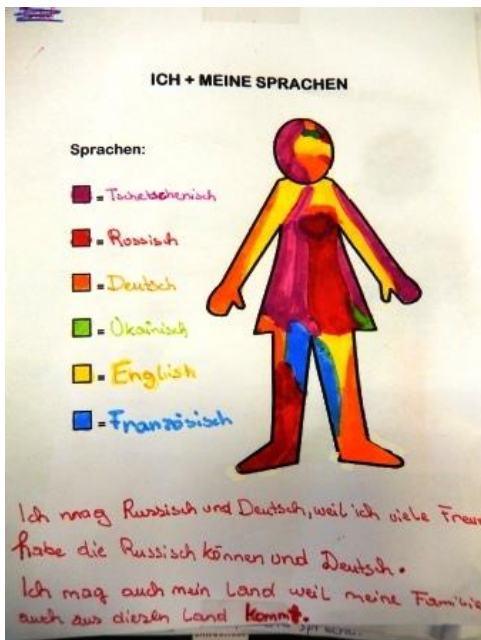 ICH + MEINE SPRACHEN
Sprachen:
= Tschetschenisch
= Russisch
= Deutsch
= Ukainisch
= English
= Französisch
Ich mag Russisch und Deutsch, weil ich viele Freun
habe die Russisch können und Deutsch.
Ich mag auch mein Land weil meine Familie
auch aus diesen Land kommt.